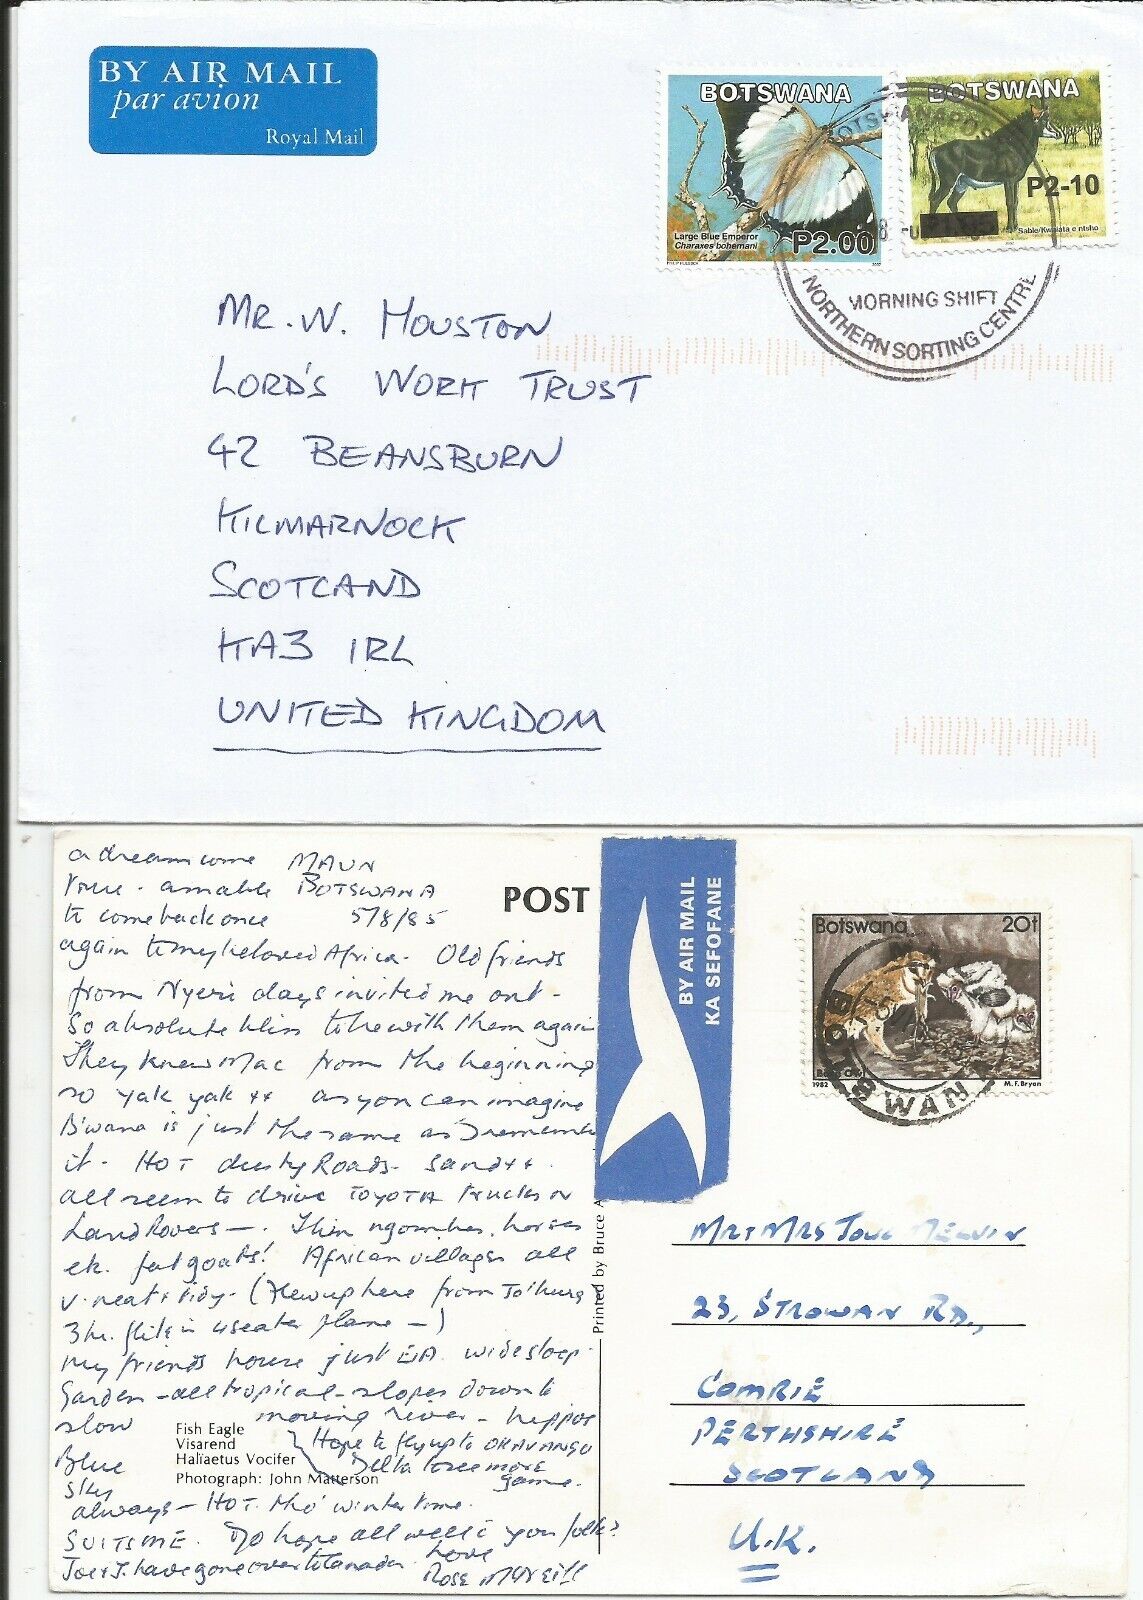 BY AIR MAIL
par avion
Royal Mail
BOTSWANA
Large Blue Emperor
Charaxes bohemani
P2.00
2002
BOTSWANA
P2-10
Sable/Kwalata e ntsho
2002
MORNING SHIFT
NORTHERN SORTING CENTRE
MR. W. HOUSTON
LORD'S WORK TRUST
42 BEANSBURN
KILMARNOCK
SCOTLAND
KA3 1RL
UNITED KINGDOM
a dream come
true - am able
to come back once
MAUN
BOTSWANA
5/8/85
again to my beloved Africa. Old friends
from Nyeri days invited me out -
so absolute bliss to be with them again
They knew Mac from the beginning
so yak yak ++ as you can imagine
B'wana is just the same as I remember
it. HOT dusty Roads. Sand ++.
all seem to drive TOYOTA trucks or
Land Rovers —. Thin ngombes, horses
etc. fat goats! African villages all
v. neat & tidy. (Flew up here from Jo'burg
3 hr. flite in 4 seater plane —)
My friends house just EA. wide stoep.
Garden - all tropical - slopes down to
slow moving river - hippos
Hope to fly up to OKAVANGO
Delta to see more
game.
Blue
Sky
always - HOT. tho' winter time.
SUITS ME. Do hope all well c you folk?
Joe & J. have gone over to Canada.
Love
Rose McNeill
Fish Eagle
Visarend
Haliaetus Vocifer
Photograph: John Matterson
POST
Printed by Bruce A
BY AIR MAIL
KA SEFOFANE
Botswana 20t
1982
M.F. Bryan
BOTSWANA
MR & MRS
MELVIN
23, STROWAN RD.,
COMRIE
PERTHSHIRE
SCOTLAND
U.K.